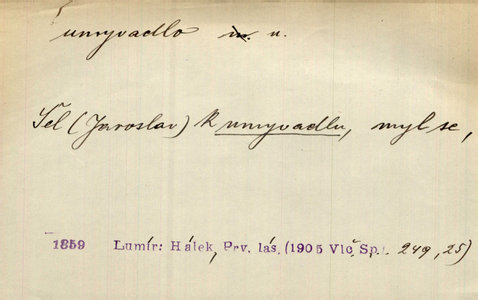 umyvadlo n.
Šel (Jaroslav) k umyvadlu, myl se,
1859 Lumír: Hálek, Prv. lás. (1905 Vlč. Sp. 249, 25)